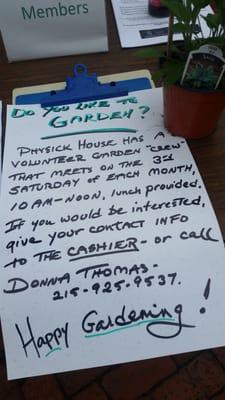 Members
Do You Like to
GARDEN?
PHYSICK HOUSE HAS A
VOLUNTEER GARDEN "CREW"
THAT MEETS ON THE 3rd
SATURDAY OF EACH MONTH,
10 AM-NOON, lunch provided.
If you would be interested,
give your contact INFO
to THE CASHIER - or call
DONNA THOMAS-
215-925-9537.
Happy Gardening!